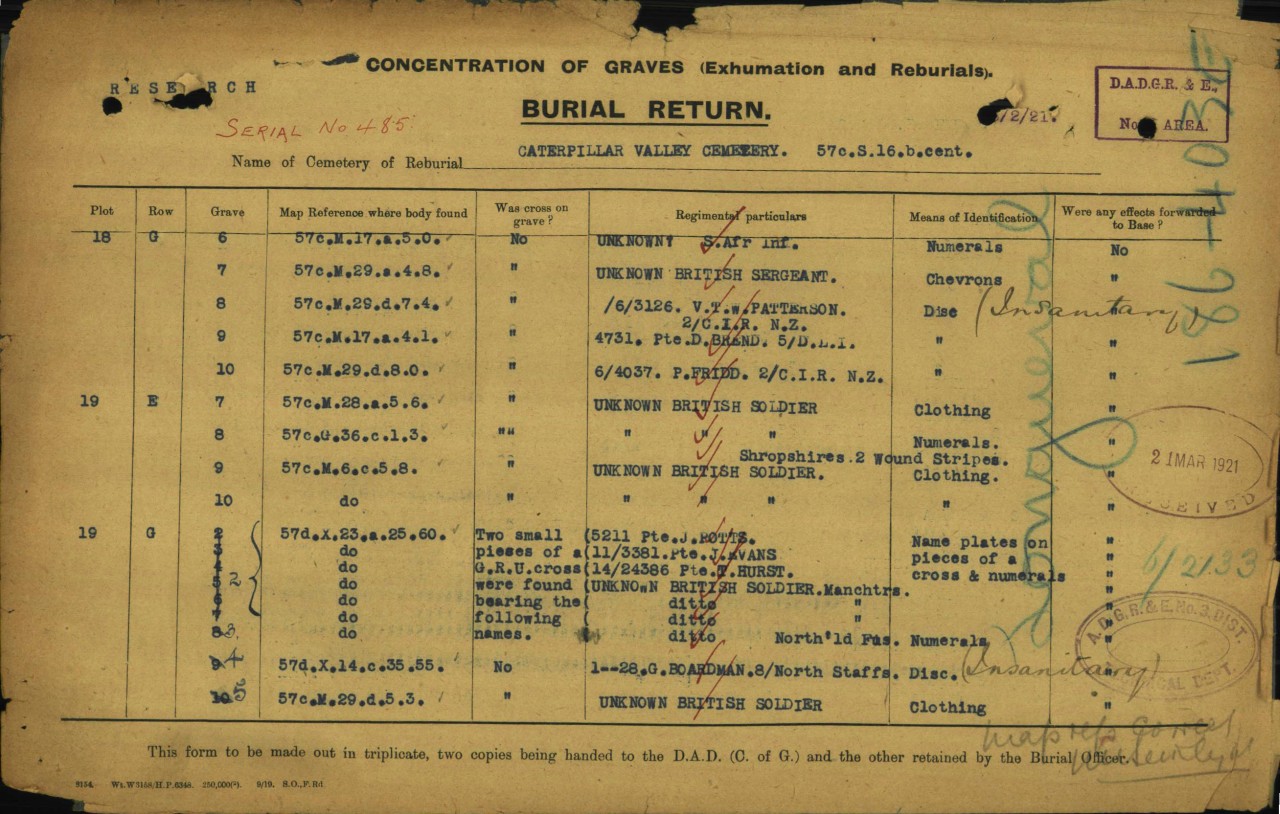 CONCENTRATION OF GRAVES (Exhumation and Reburials).
RESEARCH
BURIAL RETURN.
/2/21.
D.A.D.G.R. & E.,
No. AREA.
SERIAL No 485.
186-403E
Name of Cemetery of Reburial CATERPILLAR VALLEY CEMETERY. 57c.S.16.b.cent.
Plot Row Grave Map Reference where body found Was cross on grave? Regimental particulars Means of Identification Were any effects forwarded to Base?
18 G 6 57c.M.17.a.5.0. No UNKNOWN? S.Afr Inf. Numerals No
7 57c.M.29.a.4.8. " UNKNOWN BRITISH SERGEANT. Chevrons "
8 57c.M.29.d.7.4. " /6/3126. V.T.W.PATTERSON. Disc (Insanitary) "
2/C.I.R. N.Z.
9 57c.M.17.a.4.1. " 4731. Pte.D.BREND. 5/D.L.I. " "
10 57c.M.29.d.8.0. " 6/4037. P.FRIDD. 2/C.I.R. N.Z. " "
19 E 7 57c.M.28.a.5.6. " UNKNOWN BRITISH SOLDIER Clothing "
8 57c.G.36.c.1.3. "" " " " Numerals. "
Shropshires.2 wound Stripes.
9 57c.M.6.c.5.8. " UNKNOWN BRITISH SOLDIER. Clothing. "
10 do " " " " " "
19 G 2 57d.X.23.a.25.60. Two small (5211 Pte.J.POTTS. Name plates on "
3 do pieses of a (11/3381.Pte.J.EVANS pieces of a "
4 do G.R.U.cross (14/24386 Pte.T.HURST. cross & numerals "
5 2 do were found (UNKNOWN BRITISH SOLDIER.Manchtrs. "
6 do bearing the ( ditto " "
7 do following ( ditto " "
8 3 do names. ditto North'ld Fus. Numerals "
9 4 57d.X.14.c.35.55. No 1--28.G.BOARDMAN.8/North Staffs. Disc. (Insanitary) "
10 5 57c.M.29.d.5.3. " UNKNOWN BRITISH SOLDIER Clothing "
Longueval
21 MAR 1921
RECEIVED
6/2133
A.D.G.R.& E. No.3. DIST.
DEPT.
map refs correct
This form to be made out in triplicate, two copies being handed to the D.A.D. (C. of G.) and the other retained by the Burial Officer.
9154. Wt.W3168/H.P.6348. 250,000(2). 9/19. S.O.,F.Rd.